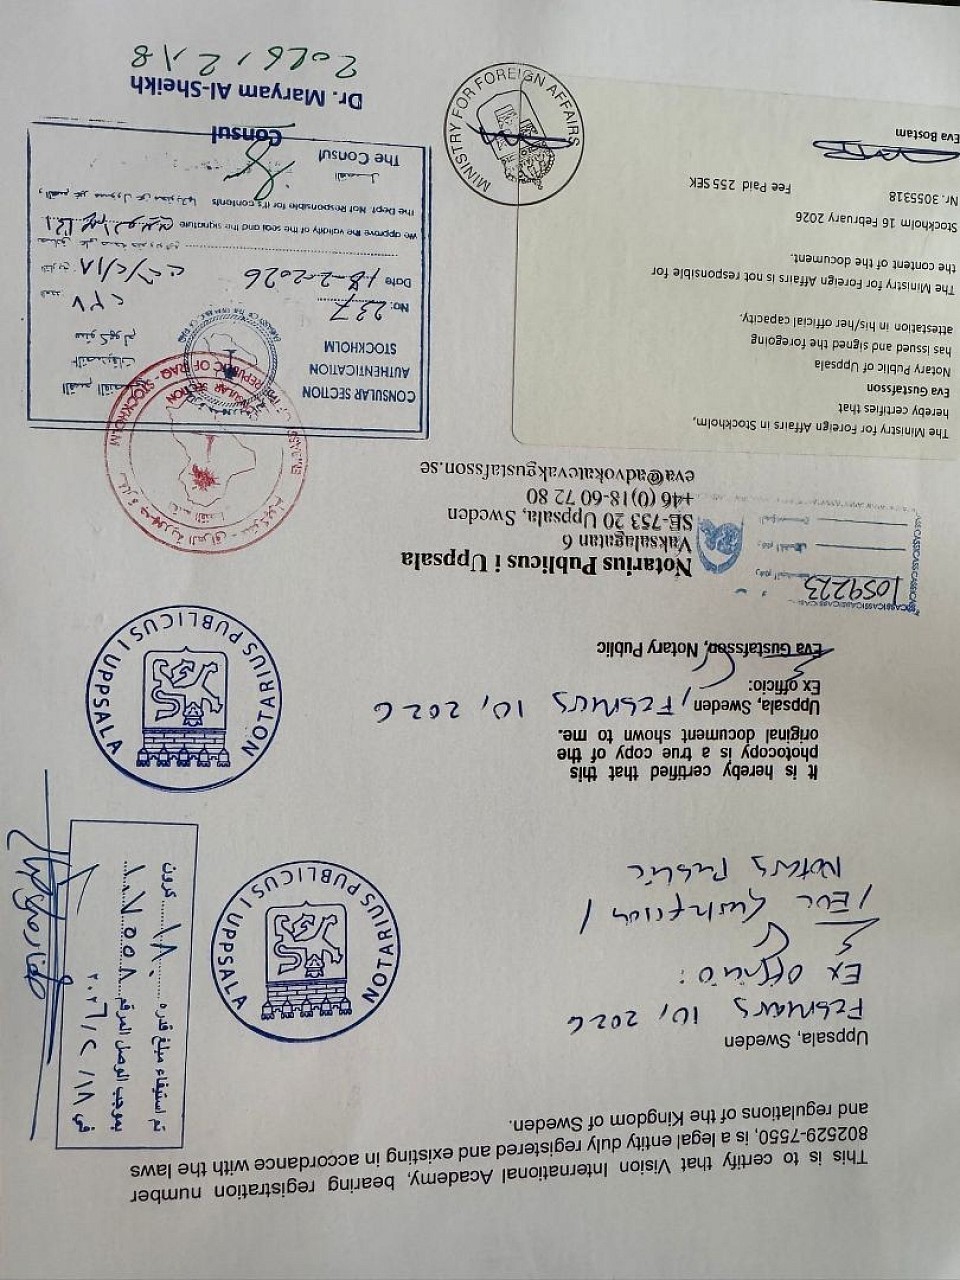 This is to certify that Vision International Academy, bearing registration number
802529-7550, is a legal entity duly registered and existing in accordance with the laws
and regulations of the Kingdom of Sweden.
Uppsala, Sweden
February 10, 2026
Ex officio:
/ Eva Gustafsson /
Notary Public
NOTARIUS PUBLICUS I UPPSALA
تم استيفاء مبلغ قدره ١٨٠ كرون
بموجب الوصل المرقم ١٠٧٥٥٨
في ٢٠٢٦/٢/١٨
It is hereby certified that this
photocopy is a true copy of the
original document shown to me.
Uppsala, Sweden, February 10, 2026
Ex officio:
Eva Gustafsson, Notary Public
NOTARIUS PUBLICUS I UPPSALA
1059223
Notarius Publicus i Uppsala
Vaksalagatan 6
SE-753 20 Uppsala, Sweden
+46 (0)18-60 72 80
eva@advokatevakgustafsson.se
The Ministry for Foreign Affairs in Stockholm,
hereby certifies that
Eva Gustafsson
Notary Public of Uppsala
has issued and signed the foregoing
attestation in his/her official capacity.
The Ministry for Foreign Affairs is not responsible for
the content of the document.
Stockholm 16 February 2026
Nr. 3055318 Fee Paid 255 SEK
Eva Bostam
MINISTRY FOR FOREIGN AFFAIRS
REPUBLIC OF IRAQ - STOCKHOLM
CONSULAR SECTION
سفارة جمهورية العراق - ستوكهولم
CONSULAR SECTION القسم القنصلي
AUTHENTICATION التصديقات
STOCKHOLM ستوكهولم
No: 237 العدد ٢٣٧
Date 18-2-2026 التاريخ ٢٠٢٦/٢/١٨
We approve the validity of the seal and the signature
the Dept. Not Responsible for it's contents
The Consul القنصل
Consul
Dr. Maryam Al-Sheikh
2026.2.18